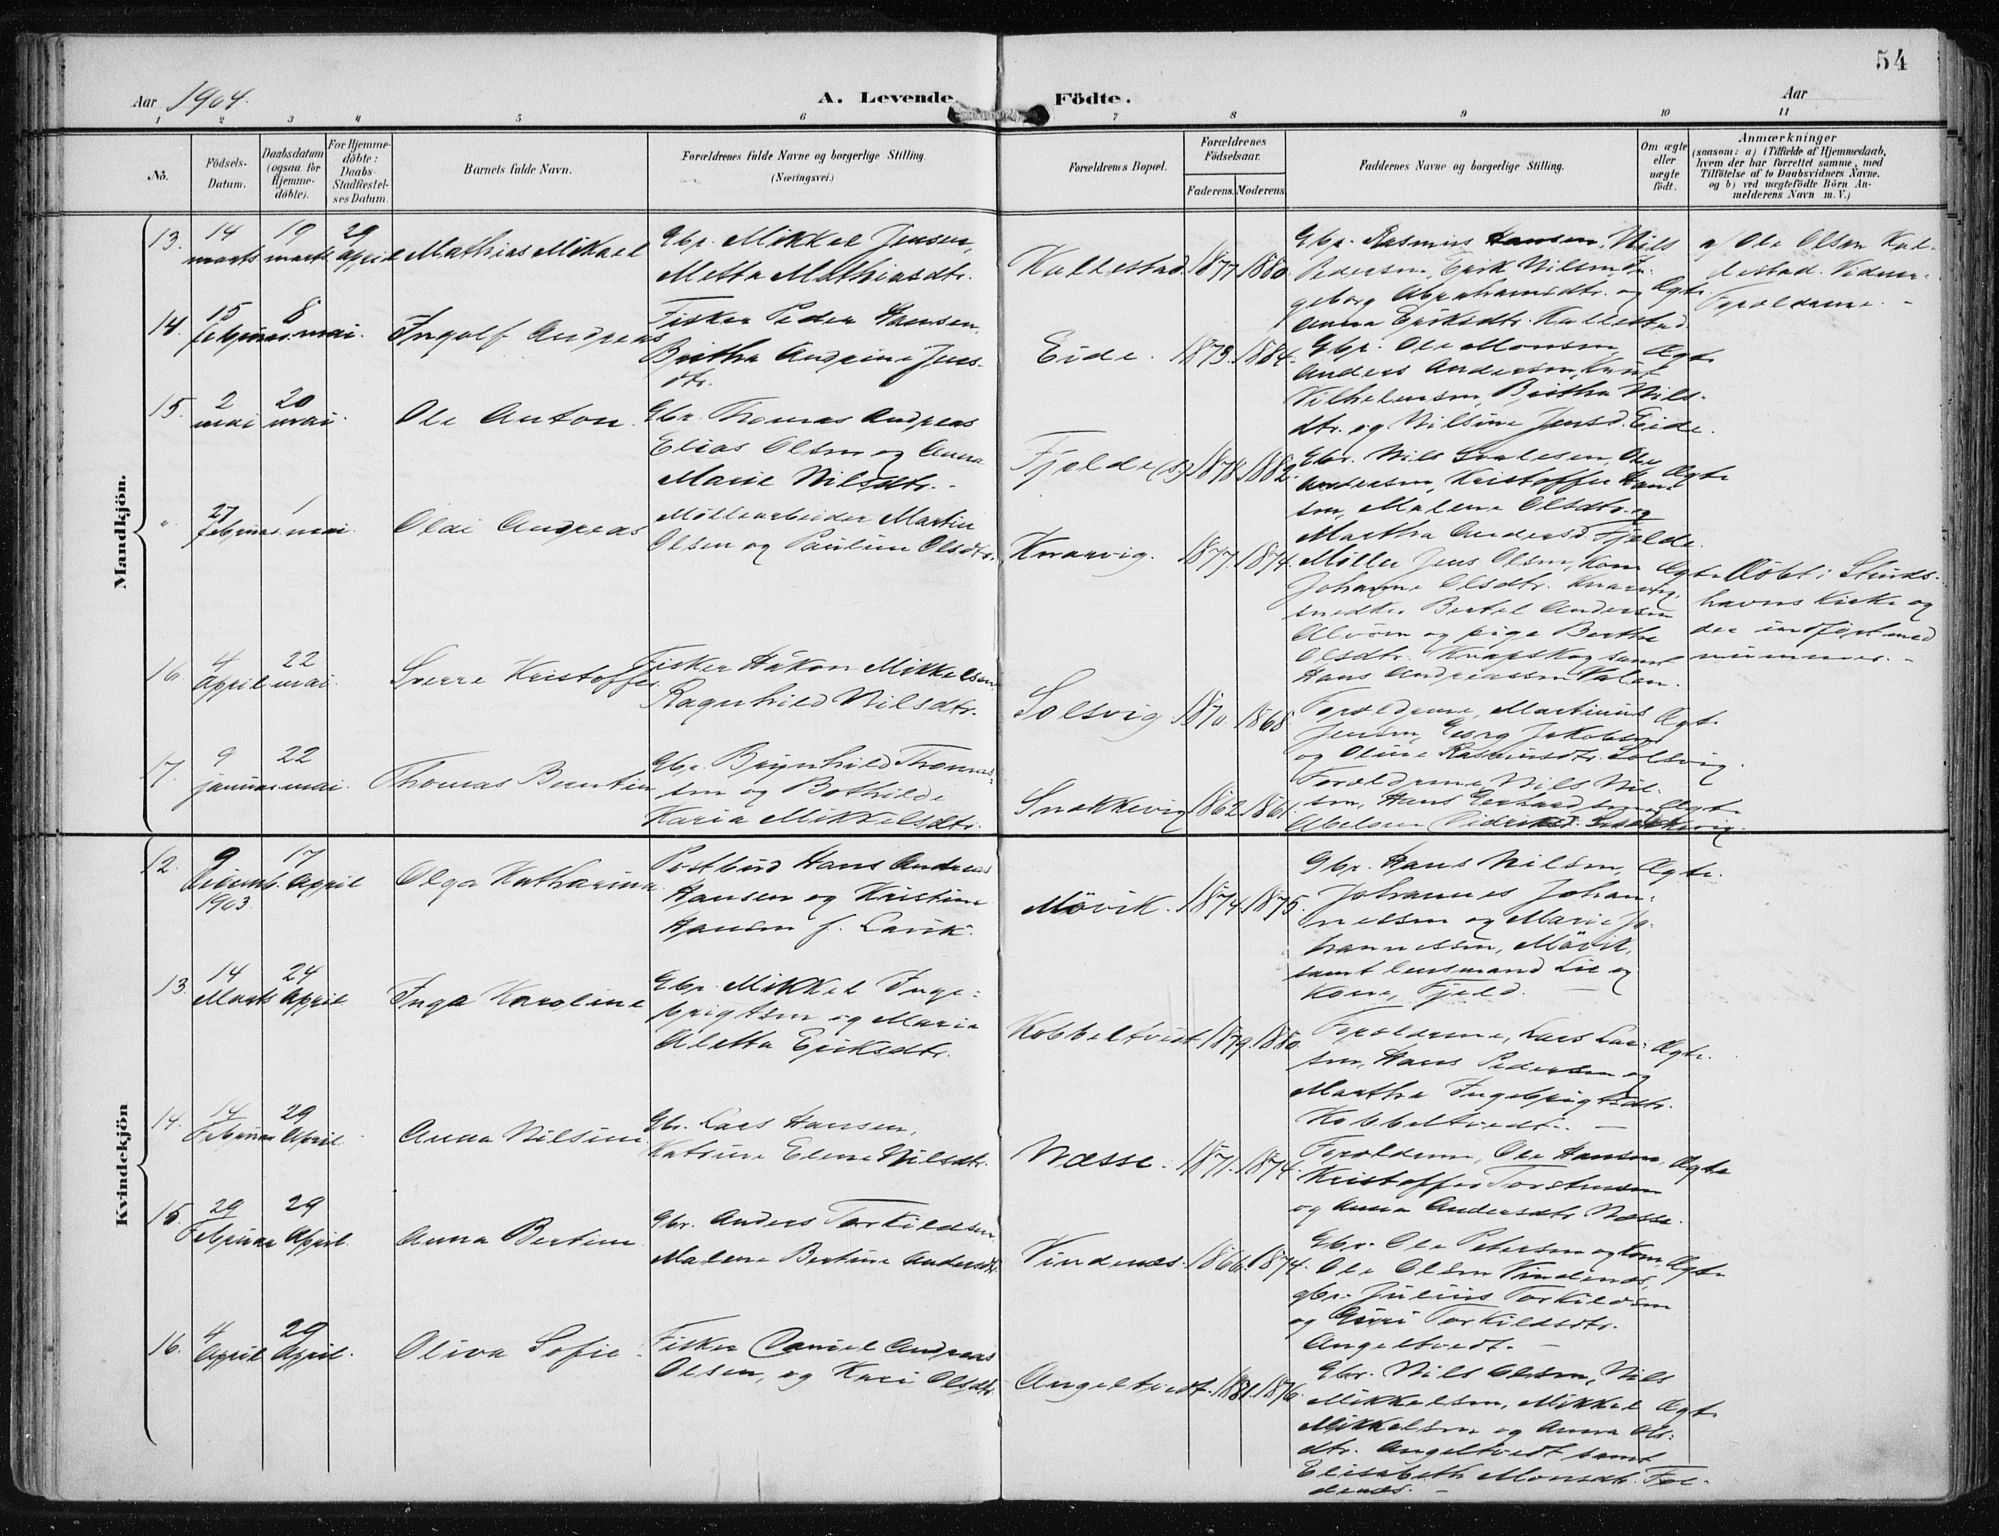 54
Aar 1904.
A. Levende Födte.
Aar
1 2 3 4 5 6 7 8 9 10 11
No.
Födsels-Datum.
Daabsdatum (ogsaa for Hjemme-döbte).
For Hjemme-döbte: Daabs-Stadfæstel-ses Datum.
Barnets fulde Navn.
Forældrenes fulde Navne og borgerlige Stilling. (Næringsvei.)
Forældrenes Bopæl.
Forældrenes Födselsaar.
Faderens. Moderens.
Faddernes Navne og borgerlige Stilling.
Om ægte eller uægte födt.
Anmærkninger
(saasom: a) i Tilfælde af Hjemmedaab, hvem der har forrettet samme, med Tilföielse af to Daabsvidners Navne. og b) ved uægtefödte Börn Anmelderens Navn m. V.)
Mandkjön.
13. 14 marts 19 marts 29 April Mathias Mikael
Gbr. Mikkel Jensen,
Metta Mathiasdtr.
Kallestad. 1877. 1880.
Gbr. Rasmus Hansen, Nils
Pedersen, Erik Nilsen, In-
geborg Abrahamsdtr. og Ægte.
Anna Eriksdtr. Kallestad.
a/ Ole Olsen Kal-
lestad. Vidner
Forældrene. -
14. 15 februar 8 mai. Ingolf Andreas
Fisker Peder Hansen,
Britha Andrine Jens-
dtr.
Eide. 1873. 1884.
Gbr. Ole Monsen, Ægte
Anders Andersen, Knut
Vilhelmsen, Britha Nils-
dtr. og Nilsine Jensd. Eide.
15. 2 mai 20 mai. Ole Anton.
Gbr. Thomas Andreas
Elias Olsen og Anna
Marie Nilsdtr. -
Fjelde (S) 1878. 1882.
Gbr. Nils Ole
Andersen, Kristoffer Han- Ægte
sen, Malene Olsdtr. og
Martha Andersd. Fjelde.
" 27 februar 1 mai. Oldi Andreas
Møllearbeider Martin
Olsen og Pauline Olsdtr.
Knarvig. 1877. 1874.
Møller Jens Olsen, Kone Ægte
Johanne Olsdtr. Knarvig,
snedker Bertel Andersen
Alvöen og pige Berthe
Olsdtr. samt
Hans Andreassen
Döbt i Studs-
havns Kirke og
der indført med
nummer. -
16. 4 April 22 mai. Sverre Kristoffer
Fisker Håkon Mikkelsen,
Ragnhild Nilsdtr.
Solsvig 1870. 1868.
Forældrene, Martinus Ægte
Jensen, Georg Jakobsen
og Oline Rasmusdtr. Solsvig.
17. 9 januar 22 mai. Thomas Bertin
Gbr. Brynhild Thomas-
sen og Bothilde
Karia Mikkelsdtr.
Snekkevig 1862. 1861.
Forældrene, Nils Nil-
sen, Hans Ægte
Kvindekjön
12. 9 Decemb. 1903 17 April Olga Katharina
Postbud Hans Andreas
Hansen og Kristine
Hansen f. Larik.
Mövik. 1874. 1875.
Gbr. Hans Nilsen, Ægte.
Johannes Johan-
nessen og Marie Jo-
hannessen, Mövik,
samt lensmand Lie og
Kone, Fjeld. -
13. 14 Marts 24 April Inga Karoline
Gbr. Mikkel Inge-
brigtsen og Marie
Aletta Eriksdtr.
Kobbeltvedt 1879. 1880.
Forældrene, Lars Lar- Ægte.
sen, Hans Pedersen og
Martha Ingebrigtsdtr.
Kobbeltvedt. -
14. 14 Februar 29 April. Anna Nilsine
Gbr. Lars Hansen,
Katrine Elene Nilsdtr.
Næsse. 1871. 1874.
Forældrene, Ole Hansen, Ægte
Kristoffer Torstensen
og Anna Andersdtr. Næsse.
15. 29 Februar 29 April. Anna Bertine
Gbr. Anders Torkildsen
Malene Bertine Andersdtr.
Vindenes. 1866. 1874.
Gbr. Ole Petersen og Kone, Ægte
Ole Olsen Vindenes,
gbr. Julius Torkildsen
og Guri Torkildsdtr.
Angeltvedt. -
16. 4 April 29 April. Oliva Sofie.
Fisker Daniel Andreas
Olsen, og Kari Olsdtr.
Angeltvedt. 1881. 1876.
Gbr. Nils Olsen, Nils
Mikkelsen, Mikkel Ægte.
Mikkelsen og Anna Ols-
dtr. Angeltvedt samt
Elisabeth Monsdtr. Fol-
denes. -